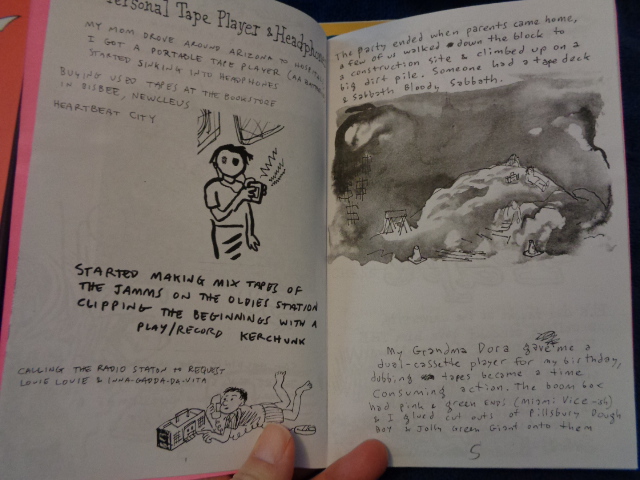 Personal Tape Player & Headphones
MY MOM DROVE AROUND ARIZONA TO HOSPITALS
I GOT A PORTABLE TAPE PLAYER (AA BATTERIES)
STARTED SINKING INTO HEADPHONES
BUYING USED TAPES AT THE BOOKSTORE
IN BISBEE, NEWCLEUS
HEARTBEAT CITY
STARTED MAKING MIX TAPES OF
THE JAMMS ON THE OLDIES STATION
CLIPPING THE BEGINNINGS WITH A
PLAY/RECORD KERCHUNK
CALLING THE RADIO STATON TO REQUEST
LOUIE LOUIE & INNA-GADDA-DA-VITA
The party ended when parents came home,
a few of us walked down the block to
a construction site & climbed up on a
big dirt pile. Someone had a tape deck
& Sabbath Bloody Sabbath.
My Grandma Dora gave me a
duel-cassette player for my birthday,
dubbing tapes became a time
consuming action. The boom box
had pink & green (Miami Vice-ish)
& I glued cut outs of Pillsbury Dough
Boy & Jolly Green Giant onto them
5